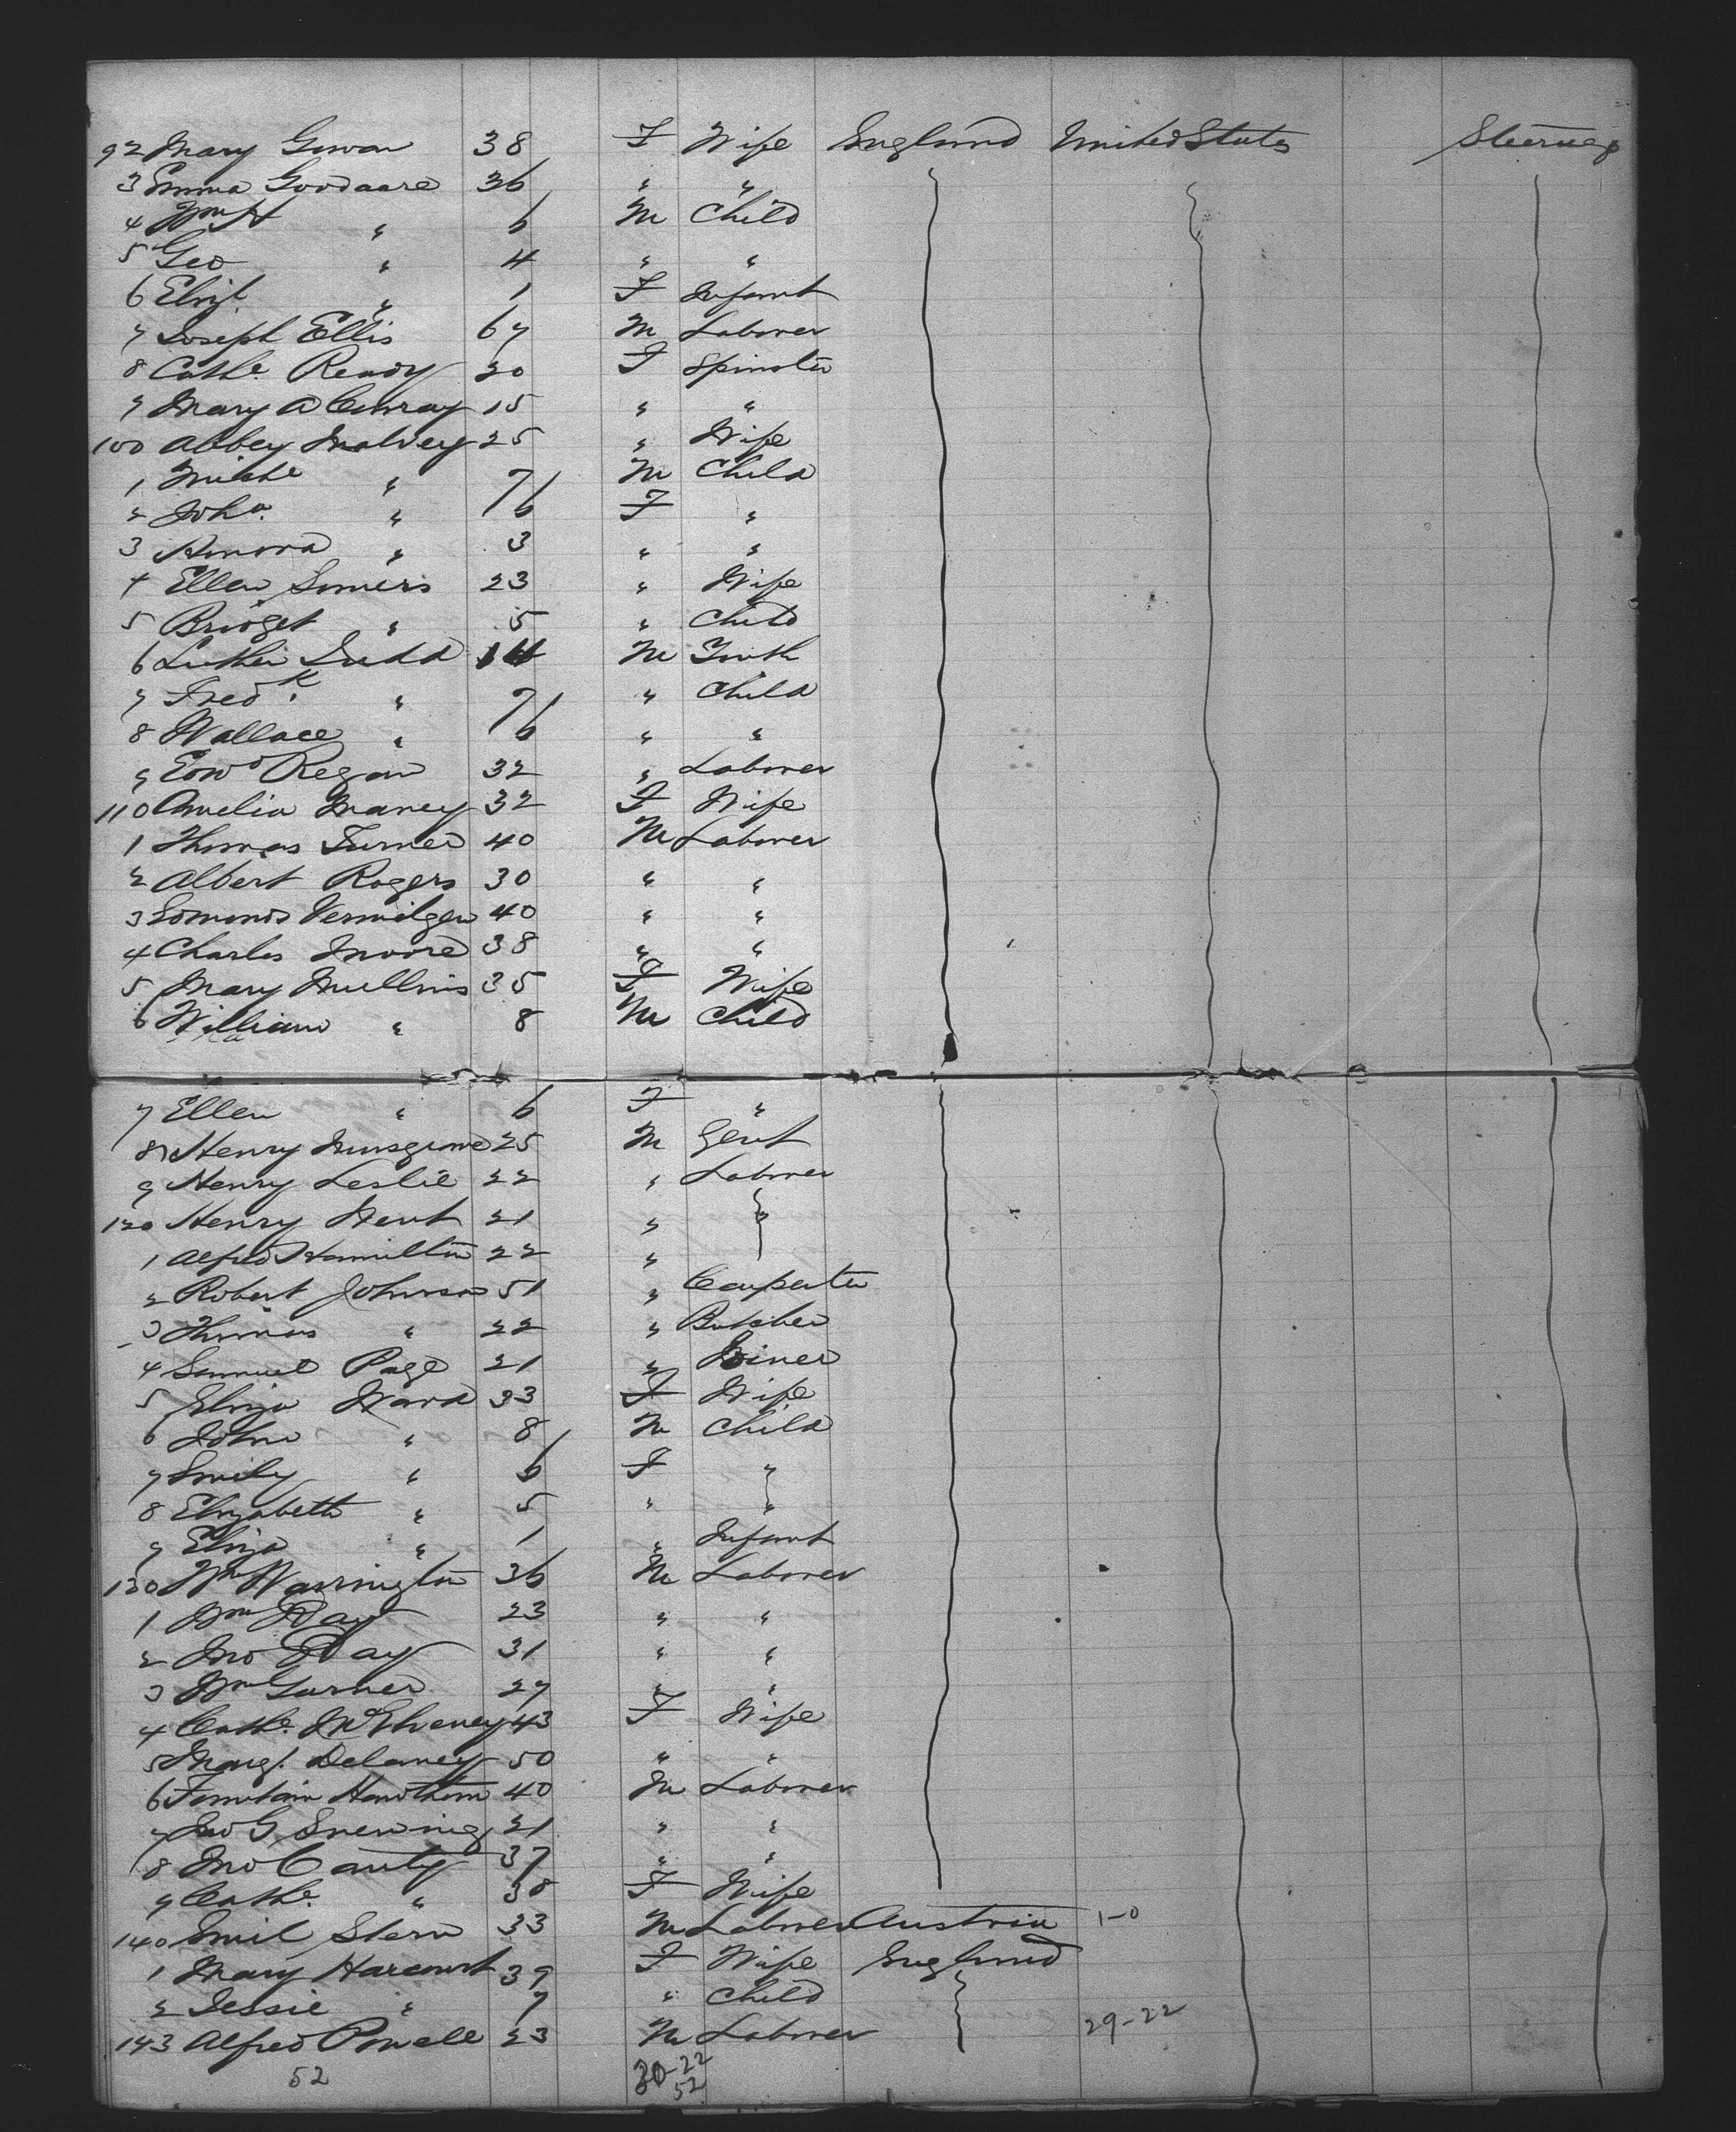 92 Mary Gowan 38 F Wife England United States Steerage
3 Emma Goodaare 36 " "
4 Wm H " 6 M Child
5 Geo " 4 " "
6 Elizt " 1 F Infant
7 Joseph Ellis 67 M Laborer
8 Cathe Ready 20 F Spinster
9 Mary A Conray 15 " "
100 Abbey Malvey 25 " Wife
1 Miche " 7 M Child
2 Joha " 6 F "
3 " 3 " "
4 Ellen Somers 23 " Wife
5 Bridget " 5 " Child
6 Luther Judd 14 M Youth
7 Fredk " 7 " Child
8 Wallace " 6 " "
9 Edwd Regan 32 " Laborer
110 Amelia Maney 32 F Wife
1 Thomas Turner 40 M Laborer
2 Albert Rogers 30 " "
3 Edmond Vermilgen 40 " "
4 Charles Moore 38 " "
5 Mary Mullins 35 F Wife
6 William " 8 M Child
7 Ellen " 6 F "
8 Henry Musgrove 25 M Gent
9 Henry Leslie 22 " Laborer
120 Henry Went 21 " "
1 Alfred Hamilton 22 "
2 Robert Johnson 51 " Carpenter
3 Thomas " 22 " Butcher
4 Samuel Page 21 " Joiner
5 Eliza Ward 33 F Wife
6 John " 8 M Child
7 Emily " 6 F "
8 Elizabeth " 5 " "
9 Eliza " 1 " Infant
130 Wm Warrington 36 M Laborer
1 Wm Day 23 " "
2 Jno Day 31 " "
3 Wm Garner 27 " "
4 Cathe McElheney 43 F Wife
5 Margt. Delaney 50 " "
6 Fountain Hawthorn 40 M Laborer
7 Jno G Snewing 21 " "
8 Jno Canty 37 " "
9 Cathe. " 38 F Wife
140 Emil Stern 33 M Laborer Austria 1-0
1 Mary Harcourt 39 F Wife England
2 Jessie " 7 " Child
143 Alfred Powell 23 M Laborer 29-22
52 30-22
52